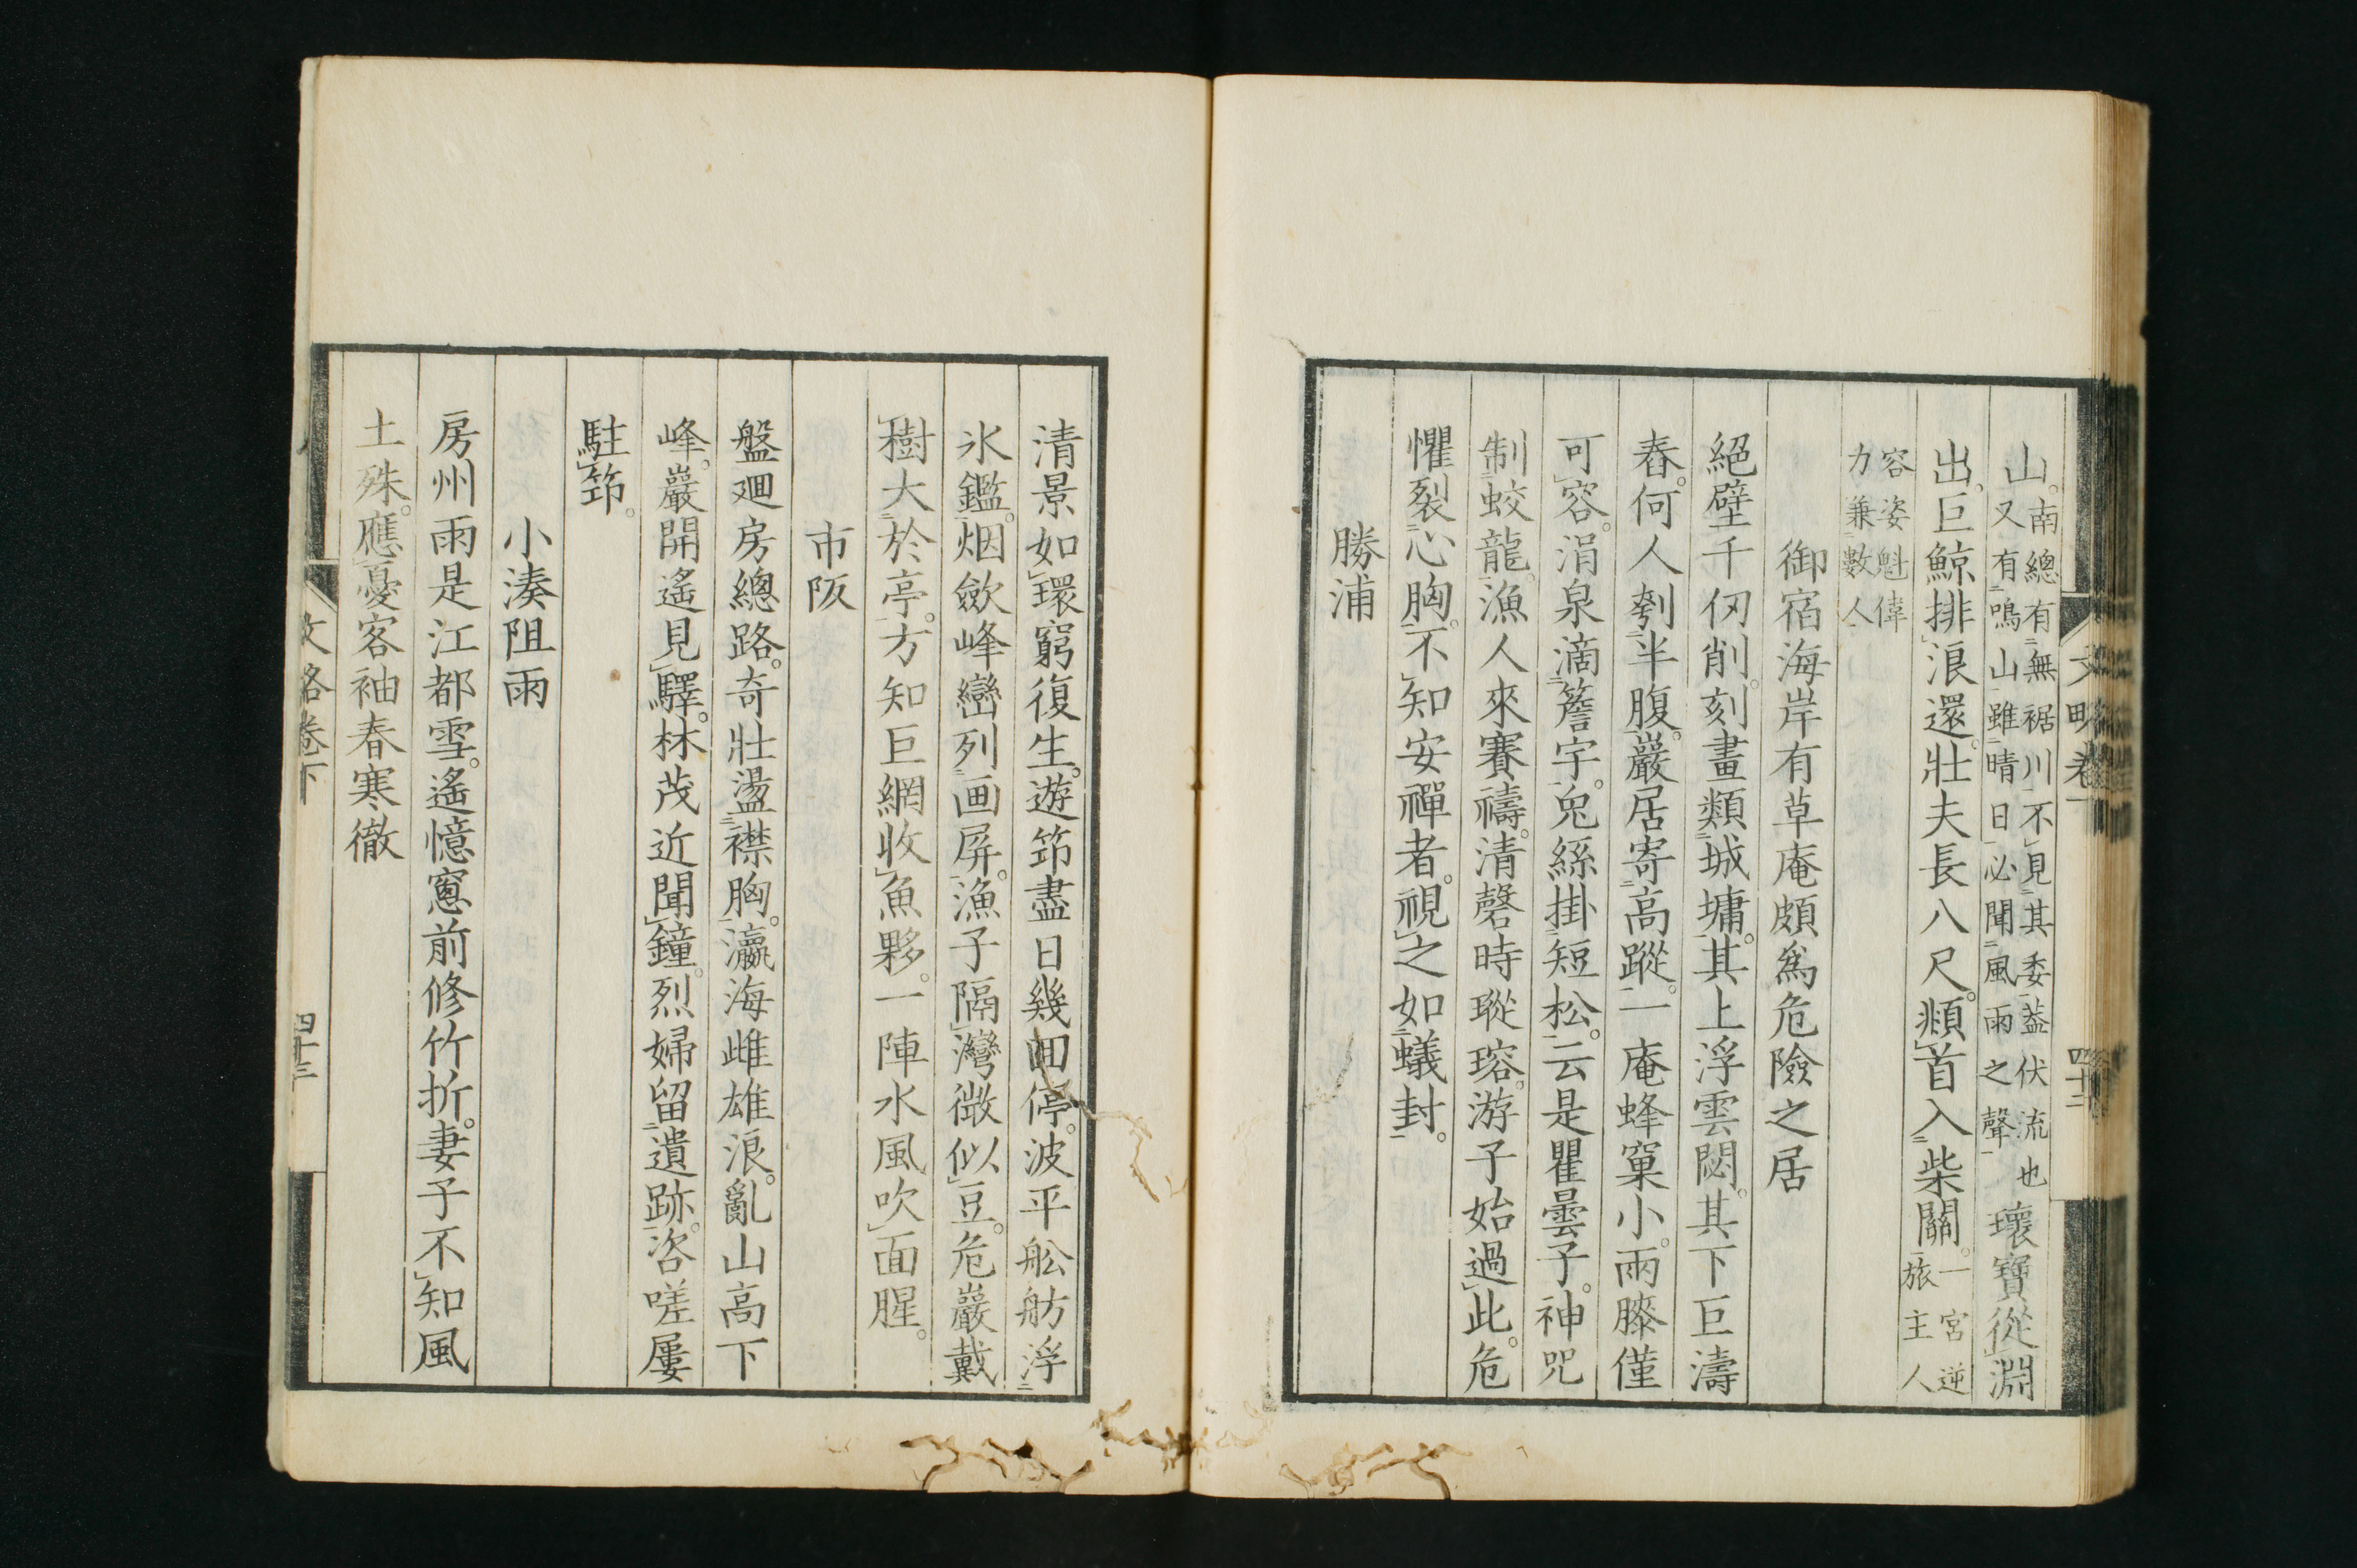 山。南總有無裾川不見其委蓋伏流也又有鳴山雖晴日必聞風雨之聲瓌寶從淵
出。巨鯨排浪還。壯夫長八尺。頫首入柴關。一宮逆旅主人
容姿魁偉力兼數人
御宿海岸有草庵頗爲危險之居
絕壁千仞削。刻畫類城墉。其上浮雲閟。其下巨濤
舂。何人刳半腹。巖居寄高蹤。一庵蜂窠小。兩膝僅
可容。涓泉滴簷宇。兔絲掛短松。云是瞿曇子。神咒
制蛟龍。漁人來賽禱。清磬時瑽瑢。游子始過此。危
懼裂心胸。不知安禪者。視之如蟻封。
勝浦
文略卷下
四十二
清景如環窮復生。遊筇盡日幾回停。波平舩舫浮
氷鑑。烟歛峰巒列画屏。漁子隔灣微似豆。危巖戴
樹大於亭。方知巨網收魚夥。一陣水風吹面腥。
市阪
盤廻房總路。奇壯盪襟胸。瀛海雌雄浪。亂山高下
峰。巖開遙見驛。林茂近聞鐘。烈婦留遺跡。咨嗟屢
駐筇。
小湊阻雨
房州雨是江都雪。遙憶窻前修竹折。妻子不知風
土殊。應憂客袖春寒徹
文略卷下
四十三